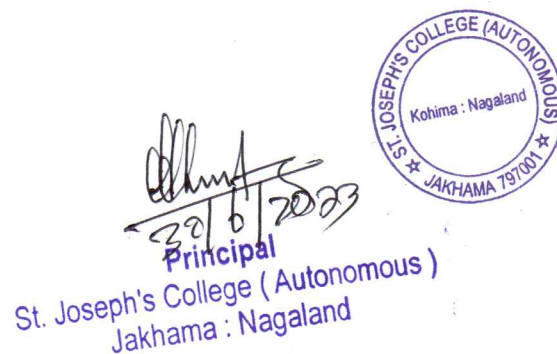 ST. JOSEPH'S COLLEGE (AUTONOMOUS)
Kohima : Nagaland
☆ JAKHAMA 797001 ☆
30/6/2023
Principal
St. Joseph's College ( Autonomous )
Jakhama : Nagaland